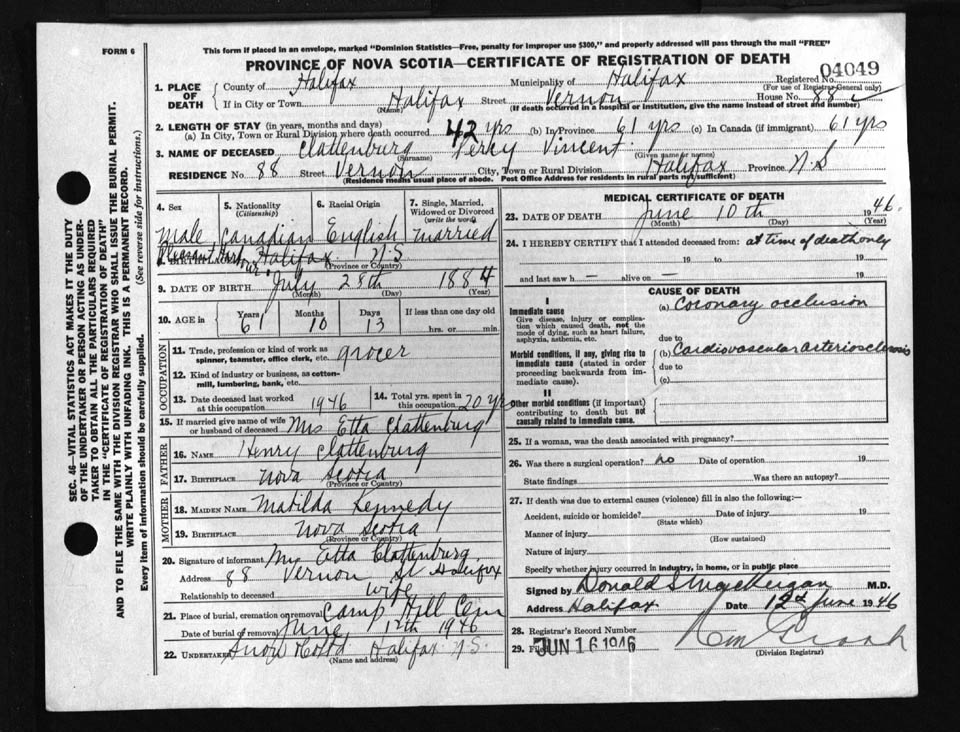 FORM 6
This form if placed in an envelope, marked "Dominion Statistics—Free, penalty for improper use $300," and properly addressed will pass through the mail "FREE"
PROVINCE OF NOVA SCOTIA—CERTIFICATE OF REGISTRATION OF DEATH
04049
1. PLACE OF DEATH
County of Halifax Municipality of Halifax Registered No.
(For use of Registrar General only)
If in City or Town Halifax Street Vernon House No. 88
(Name) (If death occurred in a hospital or institution, give the name instead of street and number)
2. LENGTH OF STAY (in years, months and days)
(a) In City, Town or Rural Division where death occurred 42 yrs (b) In Province 61 yrs (c) In Canada (if immigrant) 61 yrs
3. NAME OF DECEASED Clattenburg Percy Vincent
(Surname) (Given name or names)
RESIDENCE No. 88 Street Vernon City, Town or Rural Division Halifax Province N.S
(Residence means usual place of abode. Post Office Address for residents in rural parts not sufficient)
4. Sex 5. Nationality (Citizenship) 6. Racial Origin 7. Single, Married, Widowed or Divorced (write the word)
Male Canadian English Married
Pleasant Harbour Halifax N.S
8. BIRTHPLACE (Province or Country)
9. DATE OF BIRTH July 28th 1884
(Month) (Day) (Year)
10. AGE in Years Months Days If less than one day old
61 10 13 hrs. or min.
OCCUPATION
11. Trade, profession or kind of work as spinner, teamster, office clerk, etc. grocer
12. Kind of industry or business, as cotton-mill, lumbering, bank, etc.
13. Date deceased last worked at this occupation 1946 14. Total yrs. spent in this occupation 20 yrs
15. If married give name of wife or husband of deceased Mrs Etta Clattenburg
FATHER
16. NAME Henry Clattenburg
17. BIRTHPLACE Nova Scotia
(Province or Country)
MOTHER
18. MAIDEN NAME Matilda Kennedy
19. BIRTHPLACE Nova Scotia
(Province or Country)
20. Signature of informant Mrs Etta Clattenburg
Address 88 Vernon St Halifax
Relationship to deceased wife
21. Place of burial, cremation or removal Camp Hill Cem
Date of burial or removal June 12th 1946
22. UNDERTAKER Snow Halifax N.S.
(Name and address)
MEDICAL CERTIFICATE OF DEATH
23. DATE OF DEATH June 10th 1946.
(Month) (Day) (Year)
24. I HEREBY CERTIFY that I attended deceased from: at time of death only
19 to 19
and last saw h — alive on — 19
CAUSE OF DEATH
I
Immediate cause (a) Coronary occlusion
Give disease, injury or complication which caused death, not the mode of dying, such as heart failure, asphyxia, asthenia, etc.
due to
Morbid conditions, if any, giving rise to immediate cause (stated in order proceeding backwards from immediate cause).
(b) Cardiovascular arteriosclerosis
due to
(c)
II
Other morbid conditions (if important) contributing to death but not causally related to immediate cause.
25. If a woman, was the death associated with pregnancy?
26. Was there a surgical operation? no Date of operation 19
State findings Was there an autopsy?
27. If death was due to external causes (violence) fill in also the following:—
Accident, suicide or homicide? Date of injury 19
(State which)
Manner of injury
(How sustained)
Nature of injury
Specify whether injury occurred in industry, in home, or in public place
Signed by Donald M.D.
Address Halifax Date 12 June 1946
28. Registrar's Record Number
29. Filed JUN 16 1946
(Division Registrar)
SEC. 46—VITAL STATISTICS ACT MAKES IT THE DUTY
OF THE UNDERTAKER OR PERSON ACTING AS UNDERTAKER TO OBTAIN ALL THE PARTICULARS REQUIRED
IN THE "CERTIFICATE OF REGISTRATION OF DEATH"
AND TO FILE THE SAME WITH THE DIVISION REGISTRAR WHO SHALL ISSUE THE BURIAL PERMIT.
WRITE PLAINLY WITH UNFADING INK. THIS IS A PERMANENT RECORD.
Every item of information should be carefully supplied. (See reverse side for instructions.)